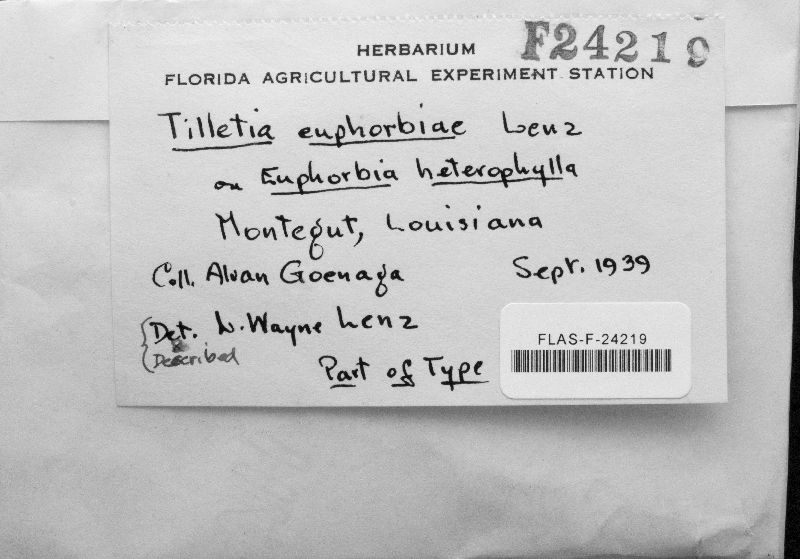 HERBARIUM F24219
FLORIDA AGRICULTURAL EXPERIMENT STATION
Tilletia euphorbiae Lenz
on Euphorbia heterophylla
Montegut, Louisiana
Coll. Alvan Goenaga Sept. 1939
Det. L. Wayne Lenz
& Described
Part of Type
FLAS-F-24219